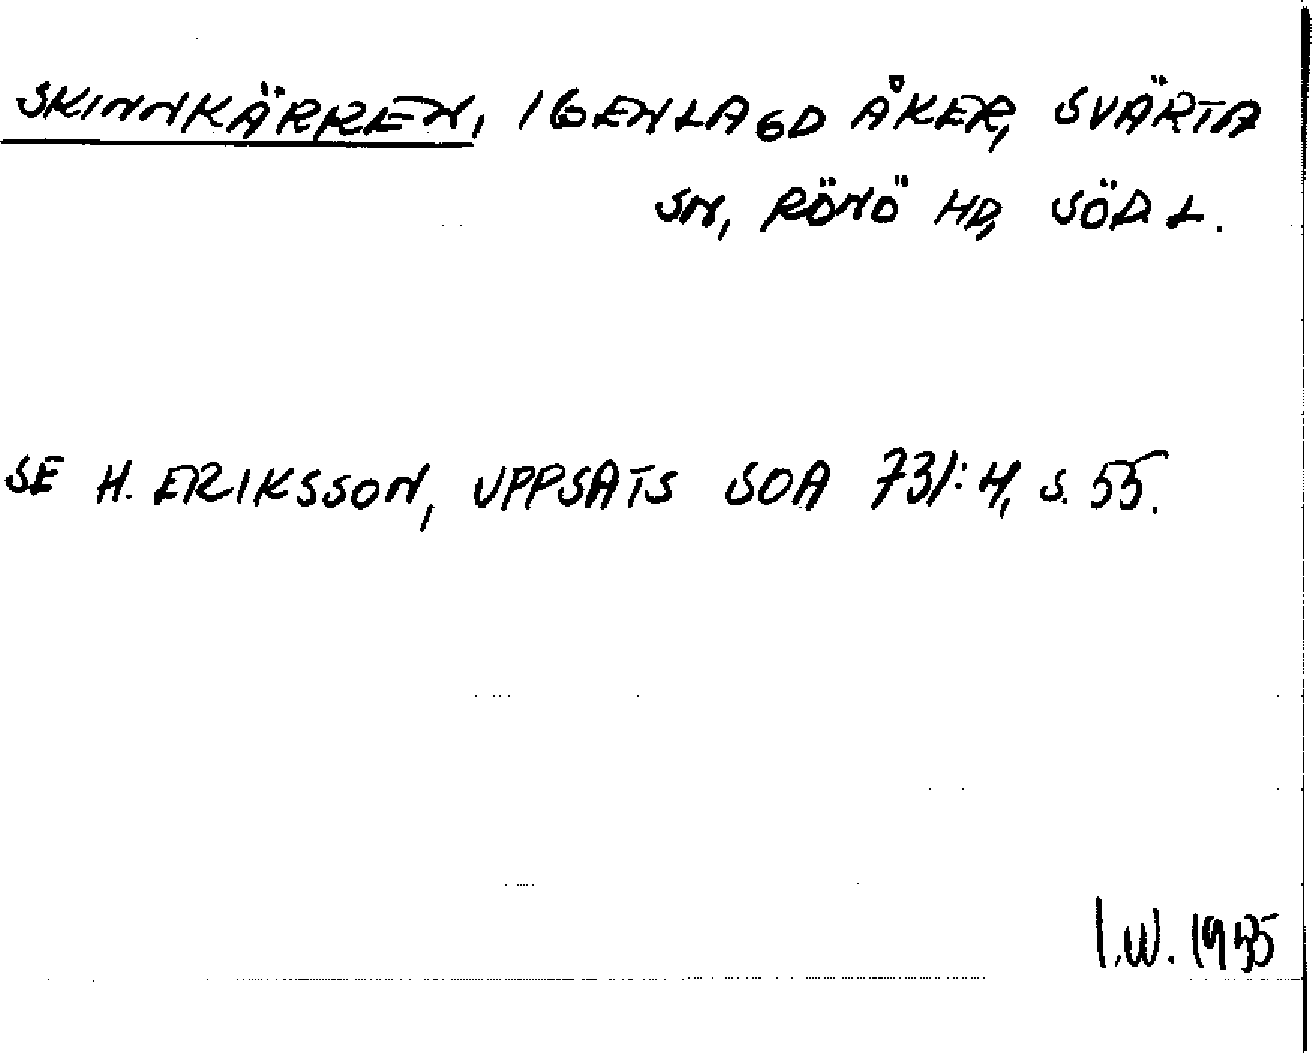 SKINNKÄRREN, IGENLAGD ÅKER, SVÄRTA
SN, RÖNÖ HD, SÖDL.
SE H. ERIKSSON, UPPSATS SOA 731:4, S. 55.
I.W.